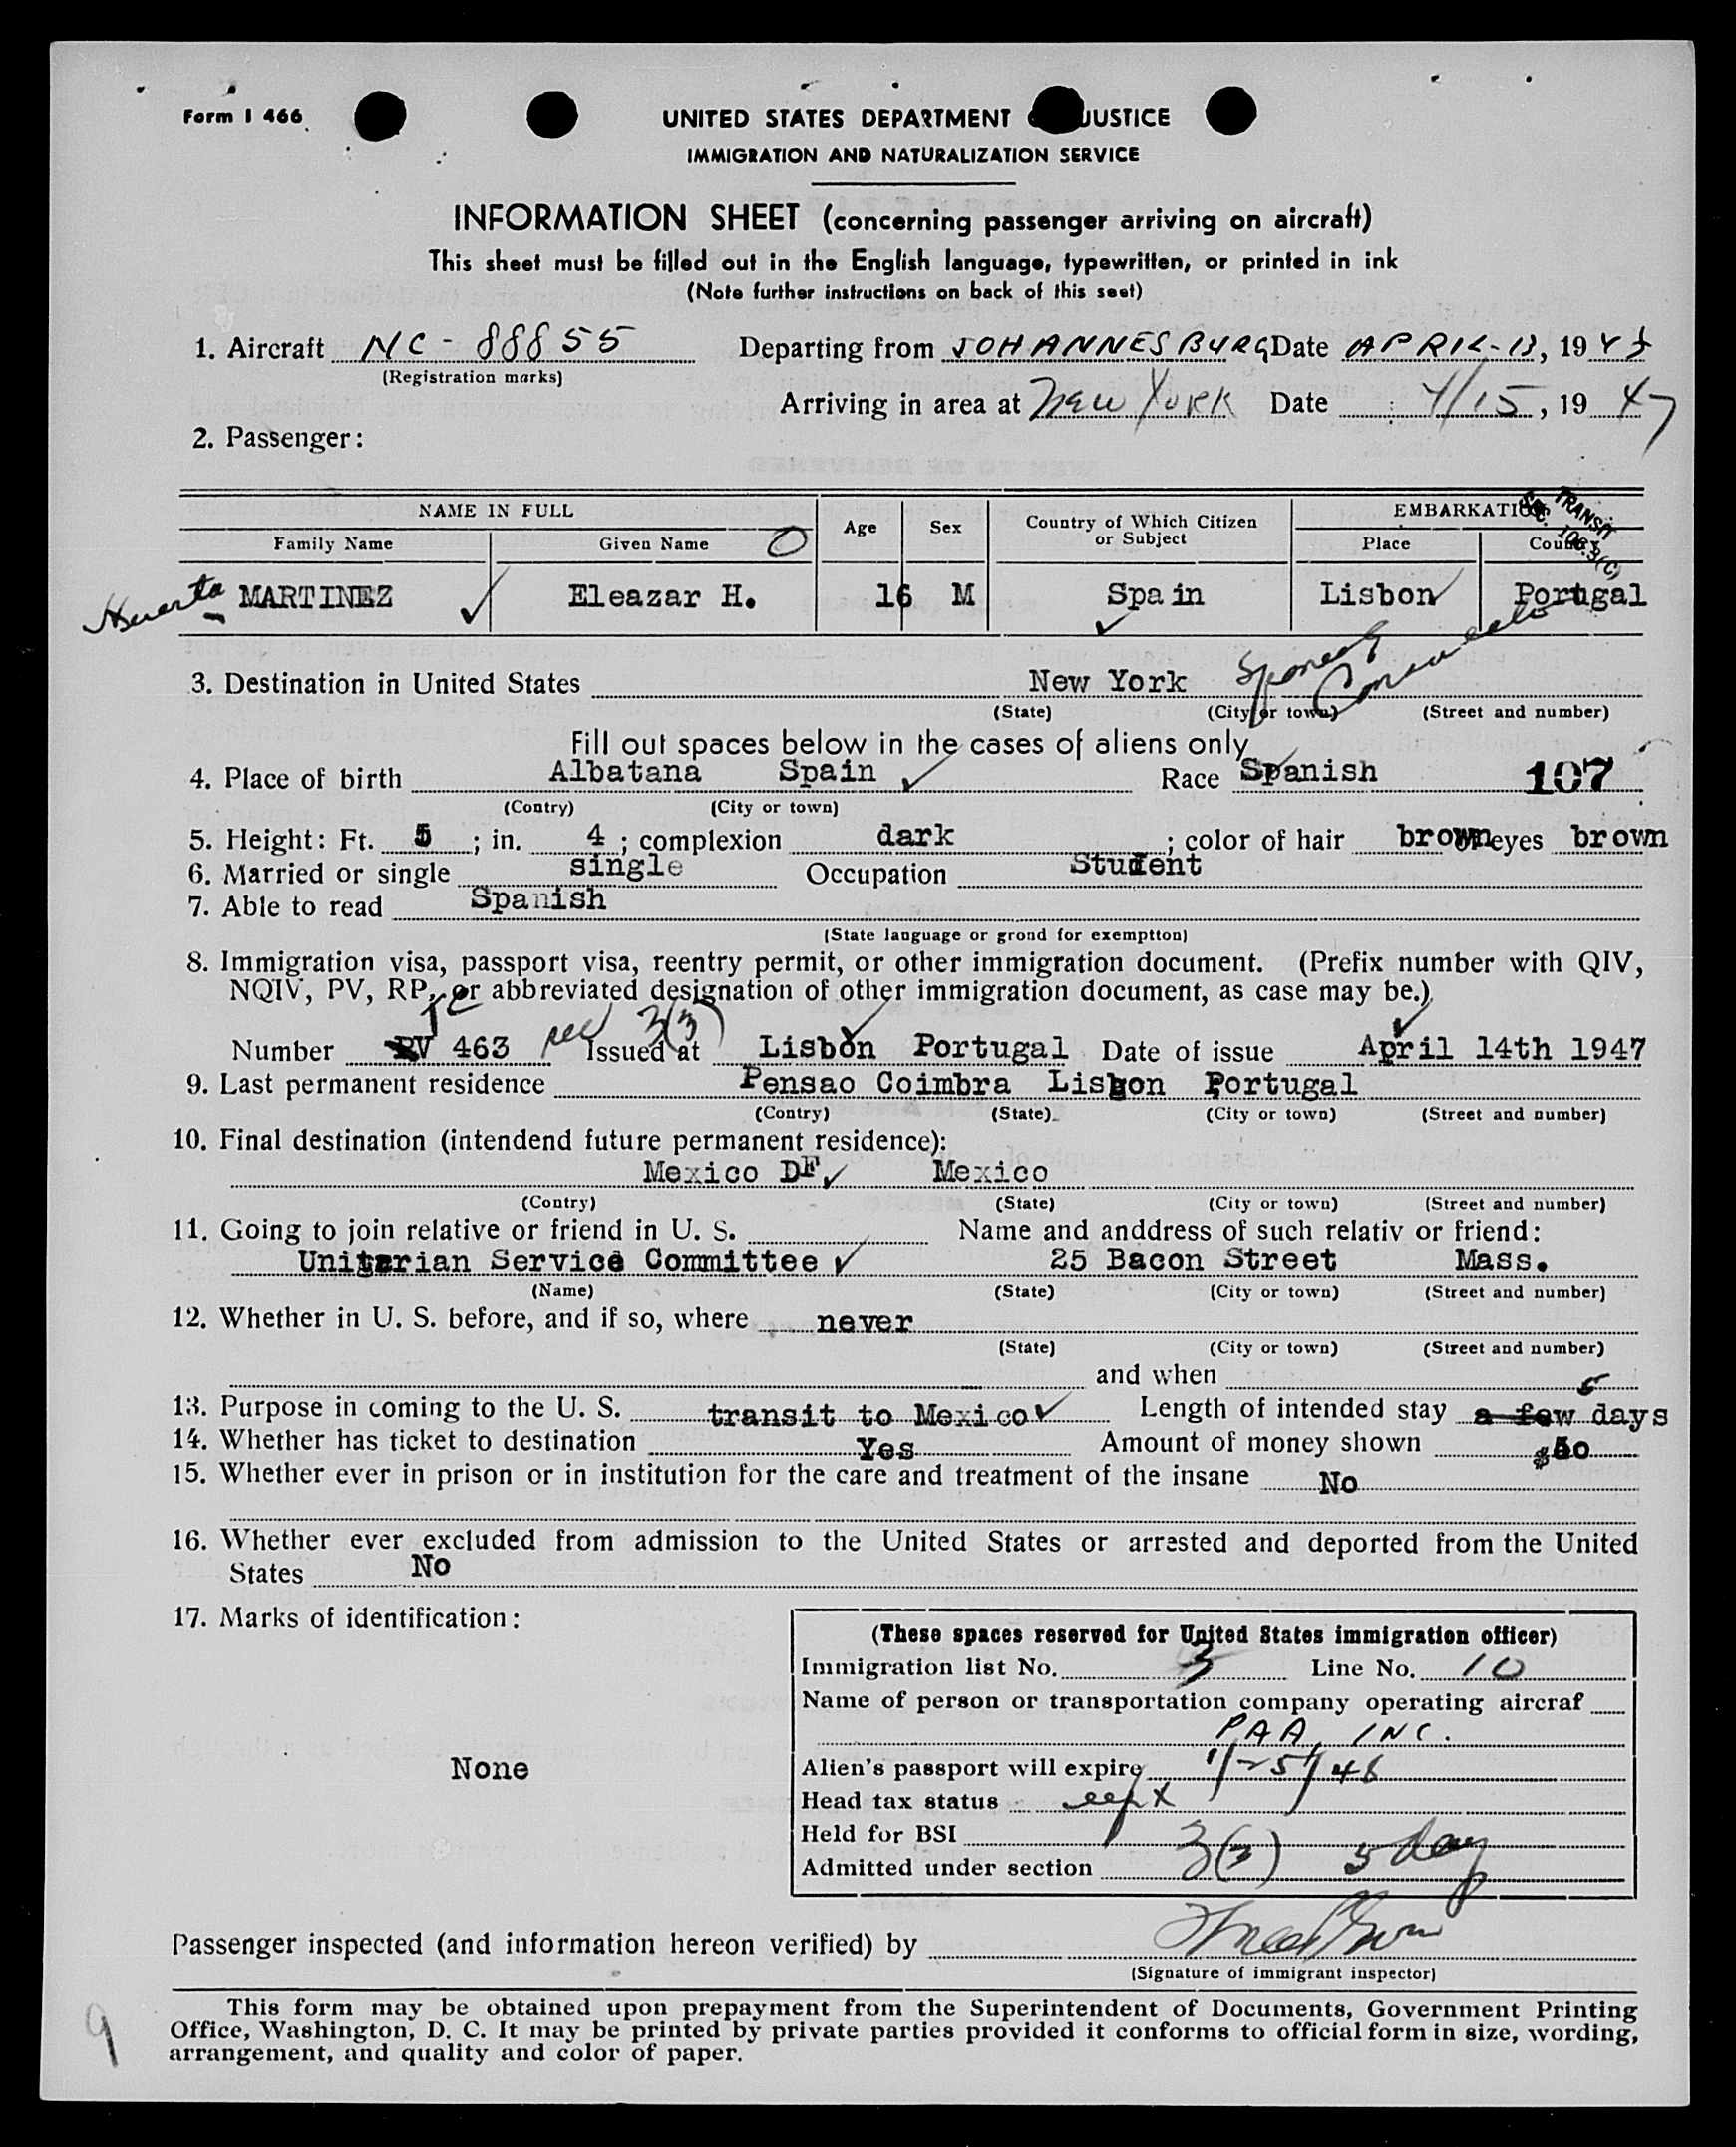 Form I 466
UNITED STATES DEPARTMENT JUSTICE
IMMIGRATION AND NATURALIZATION SERVICE
INFORMATION SHEET (concerning passenger arriving on aircraft)
This sheet must be filled out in the English language, typewritten, or printed in ink
(Note further instructions on back of this seet)
1. Aircraft NC - 88855 Departing from JOHANNESBURG Date APRIL-13, 19
(Registration marks)
Arriving in area at New York Date 4/15, 19 47
2. Passenger:
NAME IN FULL Age Sex Country of Which Citizen or Subject EMBARKATION
Family Name Given Name Place Country
TRANSIT
SEC. 106.3(C)
Huerta MARTINEZ Eleazar H. 16 M Spain Lisbon Portugal
3. Destination in United States New York
(State) (City or town) (Street and number)
Fill out spaces below in the cases of aliens only
4. Place of birth Albatana Spain Race Spanish 107
(Contry) (City or town)
5. Height: Ft. 5 ; in. 4 ; complexion dark ; color of hair brown eyes brown
6. Married or single single Occupation Student
7. Able to read Spanish
(State language or grond for exemptton)
8. Immigration visa, passport visa, reentry permit, or other immigration document. (Prefix number with QIV,
NQIV, PV, RP, or abbreviated designation of other immigration document, as case may be.)
Number 463 3(3) Issued at Lisbon Portugal Date of issue April 14th 1947
9. Last permanent residence Pensao Coimbra Lisbon Portugal
(Contry) (State) (City or town) (Street and number)
10. Final destination (intendend future permanent residence):
Mexico DF Mexico
(Contry) (State) (City or town) (Street and number)
11. Going to join relative or friend in U. S. Name and anddress of such relativ or friend:
Unitarian Service Committee 25 Bacon Street Mass.
(Name) (State) (City or town) (Street and number)
12. Whether in U. S. before, and if so, where never
(State) (City or town) (Street and number)
and when
13. Purpose in coming to the U. S. transit to Mexico Length of intended stay 5 a few days
14. Whether has ticket to destination Yes Amount of money shown
15. Whether ever in prison or in institution for the care and treatment of the insane No
16. Whether ever excluded from admission to the United States or arrested and deported from the United
States No
17. Marks of identification:
None
(These spaces reserved for United States immigration officer)
Immigration list No. 3 Line No. 10
Name of person or transportation company operating aircraf
PAA, INC.
Alien's passport will expire 1/25/48
Head tax status
Held for BSI
Admitted under section 3(3) 5 day
Passenger inspected (and information hereon verified) by
(Signature of immigrant inspector)
This form may be obtained upon prepayment from the Superintendent of Documents, Government Printing
Office, Washington, D. C. It may be printed by private parties provided it conforms to official form in size, wording,
arrangement, and quality and color of paper.
9